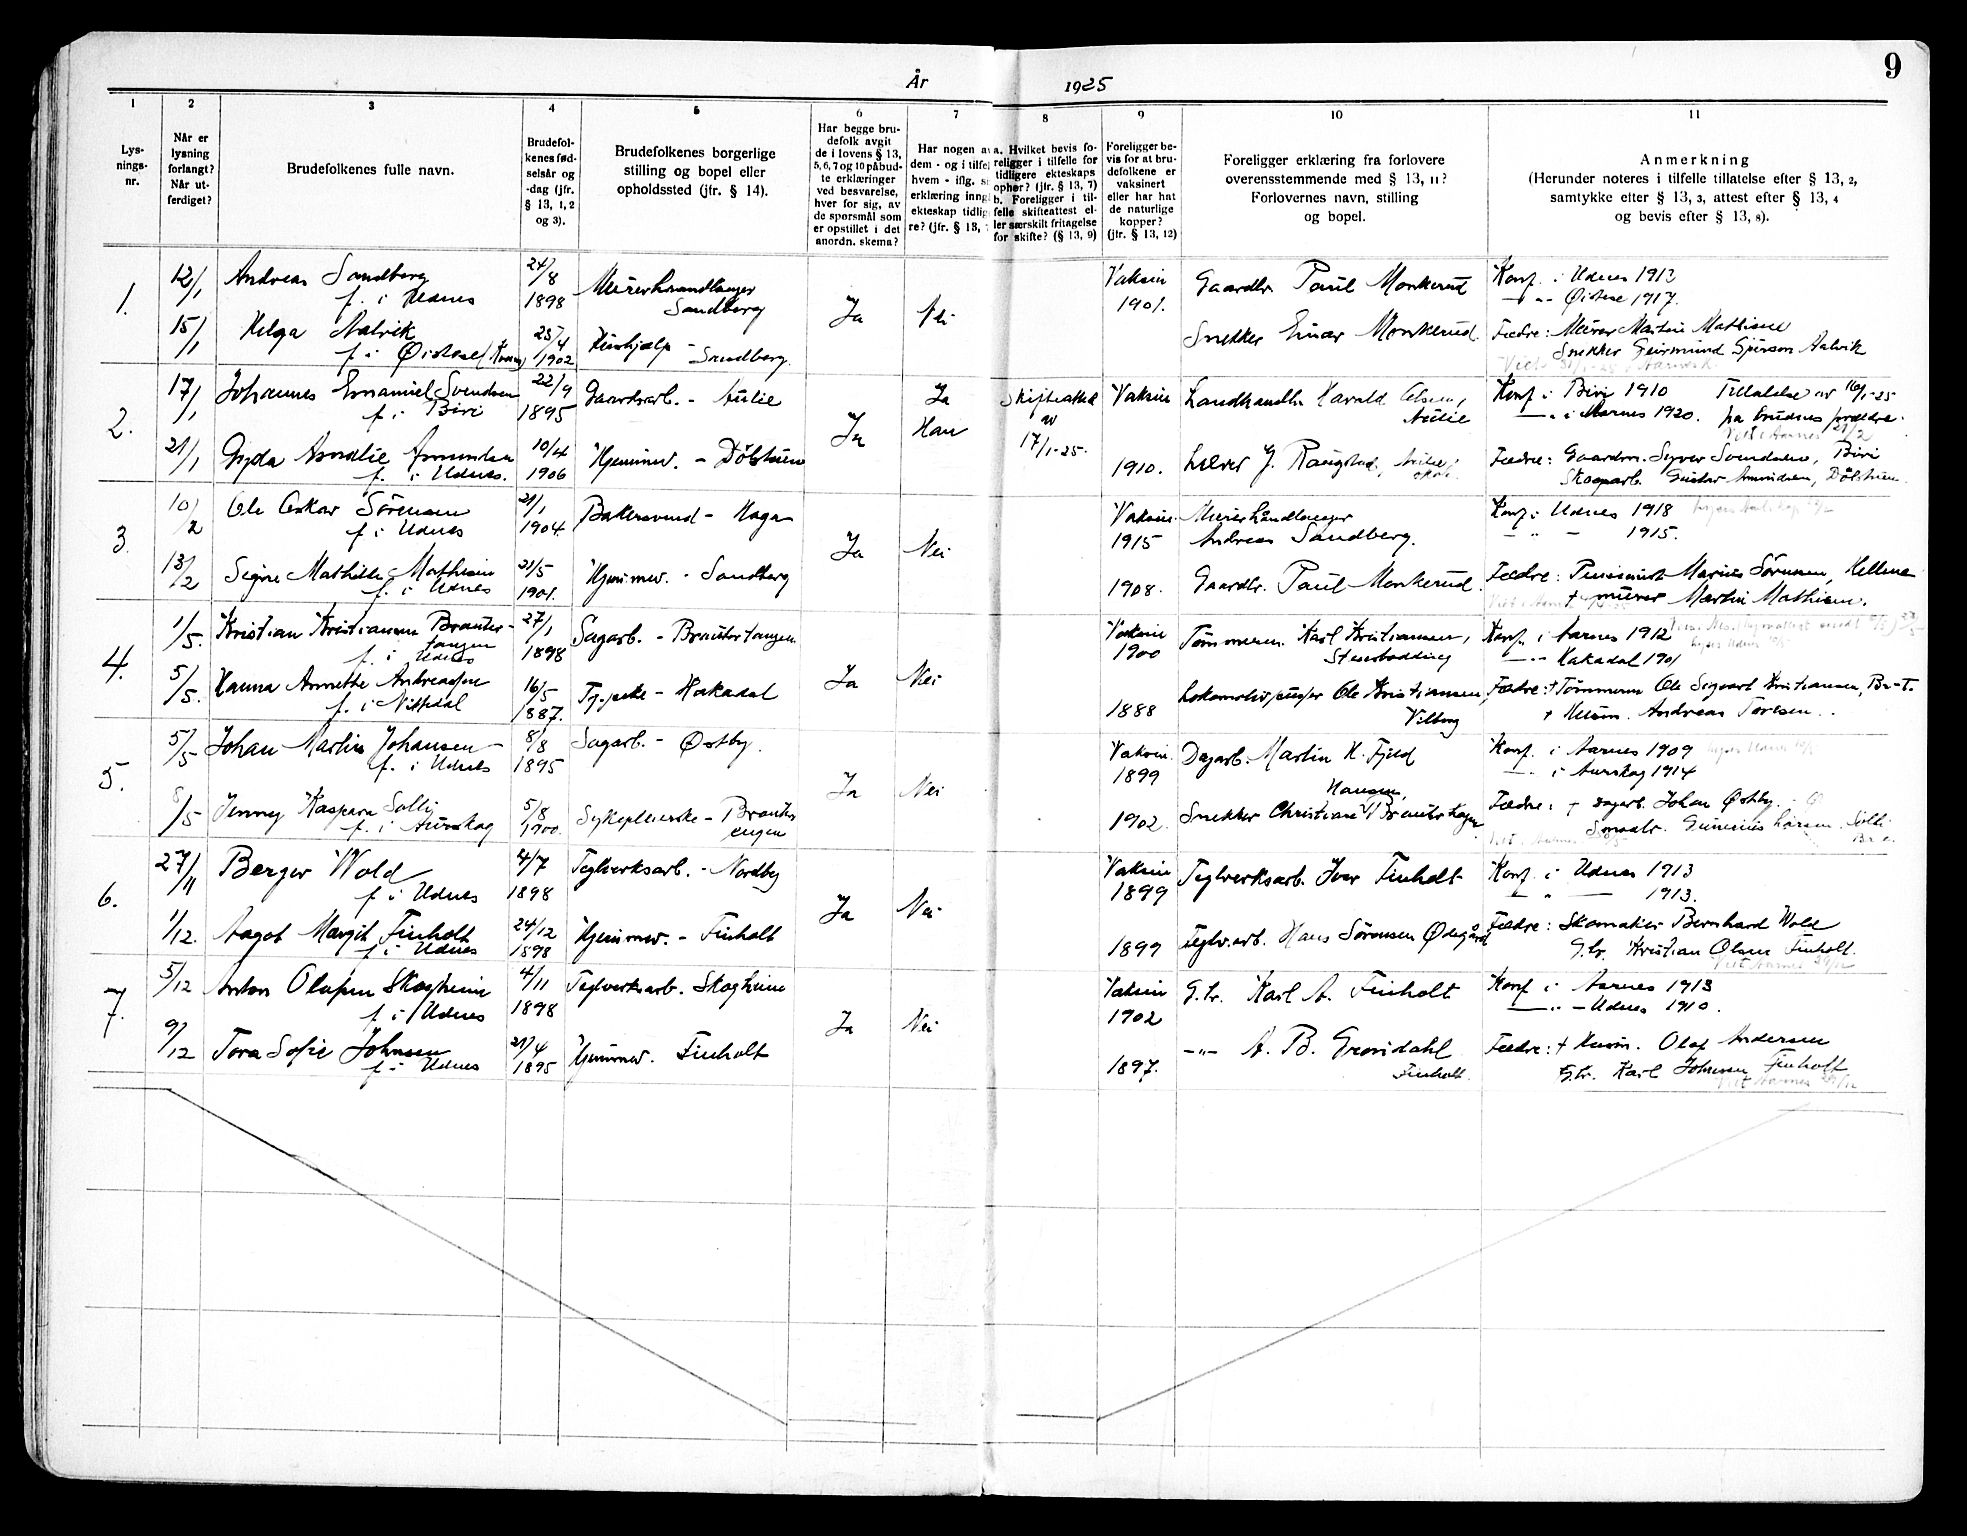 9
År 1925
1 2 3 4 5 6 7 8 9 10 11
Lys-
nings-
nr.
Når er
lysning
forlangt?
Når ut-
ferdiget?
Brudefolkenes fulle navn.
Brudefol-
kenes fød-
selsår og
-dag (jfr.
§ 13, 1, 2
og 3).
Brudefolkenes borgerlige
stilling og bopel eller
opholdssted (jfr. § 14).
Har begge bru-
defolk avgit
de i lovens § 13,
5, 6, 7 og 10 påbud-
te erklæringer
ved besvarelse,
hver for sig, av
de spørsmål som
er opstillet i det
anordn. skema?
Har nogen av
dem - og i tilfel
hvem - iflg. s
erklæring inng
ekteskap tidlig
re? (jfr. § 13,
a. Hvilket bevis fo-
religger i tilfelle for
tidligere ekteskaps
ophør? (jfr. § 13, 7)
b. Foreligger i til-
felle skifteattest el-
ler særskilt fritagelse
for skifte? (§ 13, 9)
Foreligger be-
vis for at bru-
defolkene er
vaksinert
eller har hat
de naturlige
kopper?
(jfr. § 13, 12)
Foreligger erklæring fra forlovere
overensstemmende med § 13, 11?
Forlovernes navn, stilling
og bopel.
Anmerkning
(Herunder noteres i tilfelle tillatelse efter § 13, 2,
samtykke efter § 13, 3, attest efter § 13, 4
og bevis efter § 13, 8).
1.
12/1 Andreas Sandberg 24/8 Murerhaandlanger Vaksin Gaardbr. Paul Monkerud Konf. i Udnes 1912
f. i Udnes 1898 Sandberg Ja Nei 1901. —"— Øistese 1917.
15/1 Helga Aalvik 23/4 Hushjælp - Snekker Einar Monkerud Fædre: Murer Martin Mathisen
f. i Øistese 1902 Sandberg. Snekker Geirmund Aalvik
2.
17/1 Johannes Emanuel Svendsen 22/9 Gaardsarb. - Aulie Ja Skifteattest Vaksin Landhandler Harald Olsen, Konf. i Biri 1910 Tillatelse av 16/1-25
f. i Biri 1895 Ja Han av Aulie —"— i Aarnes 1920. fra brudens forældre.
21/1 Gyda Amalie Amundsen 10/4 Hjemmev. - Dölshuen 17/1-25. Lærer J. Raugstad, Fædre: Gaardm. Syver Svendsen, Biri
f. i Udnes. 1906 1910. Skogarb. Gustav Amundsen, Dölshuen.
3.
10/2 Ole Oskar Sörensen 21/1 Bakersvend - Haga Vaksin Murerhåndlanger Konf. i Udnes 1918
f. i Udnes 1904. Ja Nei 1915 Andreas Sandberg. — " — 1915.
13/2 Signe Mathilde Mathisen 21/5 Hjemmev. - Sandberg 1908. Gaardbr. Paul Monkerud. Fædre: Marius Sörensen,
f. i Udnes 1901. † murer Martin Mathisen.
4.
1/5. Kristian Kristiansen Brauter- 27/1 Sagarb. - Brautertangen Vaksin Tømmerm. Karl Kristiansen, Konf. i Aarnes 1912
tangen
f. i Udnes 1898 Ja Nei 1900 —"— Hakadal 1901
5/5. Hanna Annette Andreassen 16/5 - Hakadal Ole Kristiansen, Fædre: † Tømmerm Ole Sigvart Kristiansen, Br-t.
f. i Nittedal 1887. 1888 Vilberg † Husm. Andreas Toresen.
5.
5/5 Johan Martin Johansen 8/8 Sagarb. - Østby. Vaksin. Dagarb. Martin H. Fjeld Konf. i Aarnes 1909
f. i Udnes 1895 Ja Nei 1899 —"— i Aurskog 1914
8/5 Jenny Kaspara Solli 5/8 Sykepleierske - Brauter Snekker Christian Hansen, Brautertangen Fædre: † Dagarb. Johan Østby.
f. i Aurskog 1900. engen 1902. Smaabr. Gunerius Larsen Solli
6.
27/11 Berger Wold 4/7 Teglverksarb. - Nordby Vaksin Teglverksarb. Iver Finholt Konf. i Udnes 1913
f. i Udnes 1898 Ja Nei 1899 — " — 1913.
1/12. Aagot Margit Finholt 24/12 Hjemmev. - Finholt 1899 Teglv.arb. Hans Sörensen Ødegård Fædre: Skomaker Bernhard Wold
f. i Udnes 1898 G.br. Kristian Olsen Finholt.
7.
5/12 Anton Olafsen Skogheim 4/11 Teglverksarb. Skogheim Vaksin G.br. Karl A. Finholt Konf. i Aarnes 1913
f. i Udnes 1898 Ja Nei 1902 —"— Udnes 1910.
9/12 Tora Sofie Johnsen 21/4 Hjemmev. Finholt —"— A. B. Gröndahl Fædre: † Husm. Olaf Andersen
f. i Udnes 1895 1897. Finholt. G.br. Karl Johnsen Finholt.